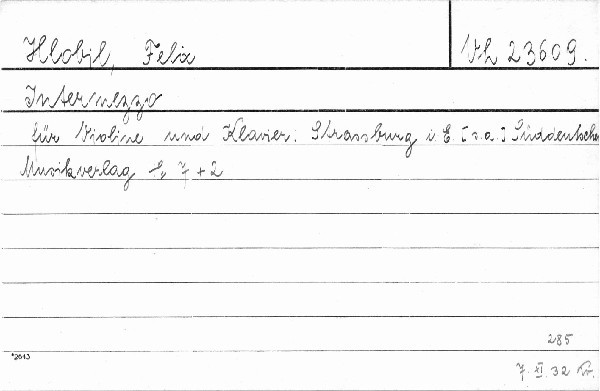 Hlobil, Felix
Vh 23609.
Intermezzo
für Violine und Klavier. Strassburg i. E. [s.a.] Süddeutscher
Musikverlag 7 + 2
285
*2613
7. XI. 32